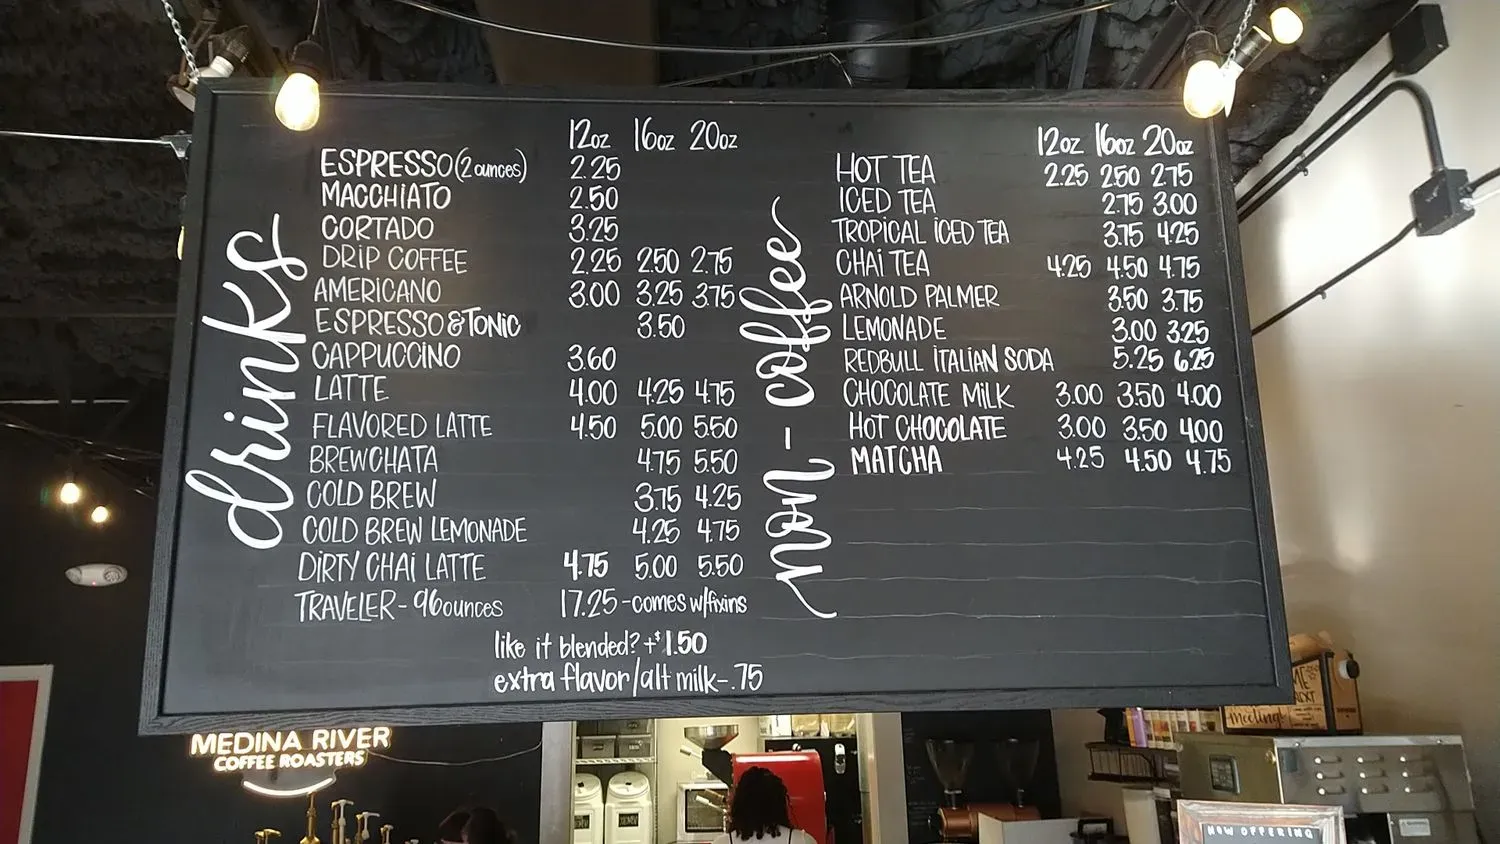 drinks
12oz 16oz 20oz
ESPRESSO (2 ounces) 2.25
MACCHIATO 2.50
CORTADO 3.25
DRIP COFFEE 2.25 2.50 2.75
AMERICANO 3.00 3.25 3.75
ESPRESSO & TONIC 3.50
CAPPUCCINO 3.60
LATTE 4.00 4.25 4.75
FLAVORED LATTE 4.50 5.00 5.50
BREWCHATA 4.75 5.50
COLD BREW 3.75 4.25
COLD BREW LEMONADE 4.25 4.75
DIRTY CHAI LATTE 4.75 5.00 5.50
TRAVELER - 96 ounces 17.25 - comes w/fixins
like it blended? +$1.50
extra flavor/alt milk - .75
non-coffee
12oz 16oz 20oz
HOT TEA 2.25 2.50 2.75
ICED TEA 2.75 3.00
TROPICAL ICED TEA 3.75 4.25
CHAI TEA 4.25 4.50 4.75
ARNOLD PALMER 3.50 3.75
LEMONADE 3.00 3.25
REDBULL ITALIAN SODA 5.25 6.25
CHOCOLATE MILK 3.00 3.50 4.00
HOT CHOCOLATE 3.00 3.50 4.00
MATCHA 4.25 4.50 4.75
MEDINA RIVER
COFFEE ROASTERS
meeting
NOW OFFERING